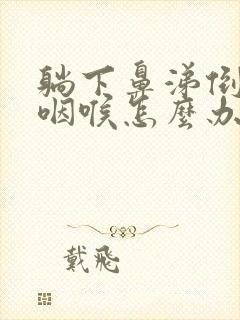 躺下鼻涕倒
咽喉怎麼办
戴飛